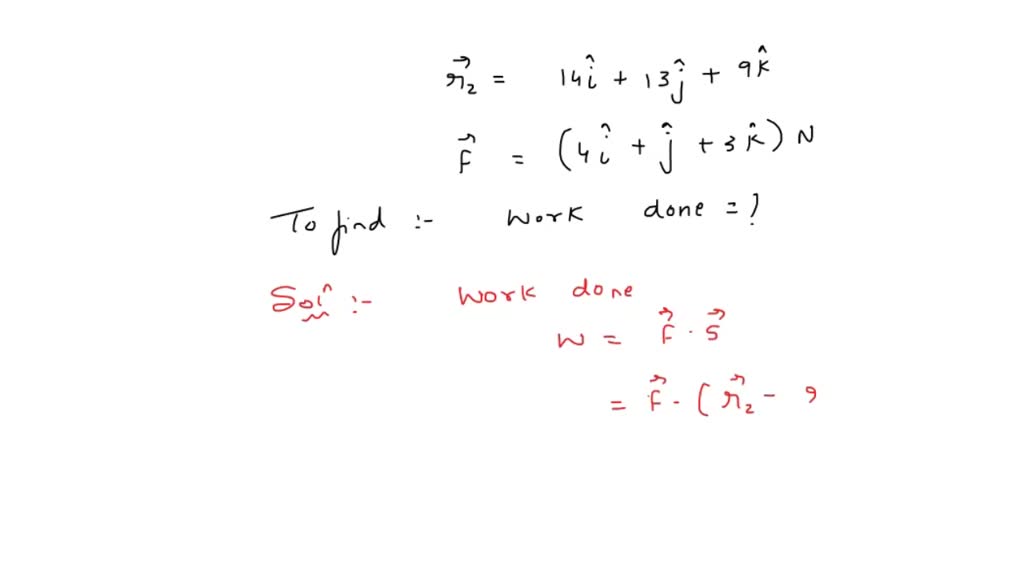 r⃗₂ = 14î + 13ĵ + 9k̂
F⃗ = (4î + ĵ + 3k̂) N
To find :- Work done = ?
Solⁿ :- Work done
W = F⃗ · S⃗
= F⃗ · (r⃗₂ -